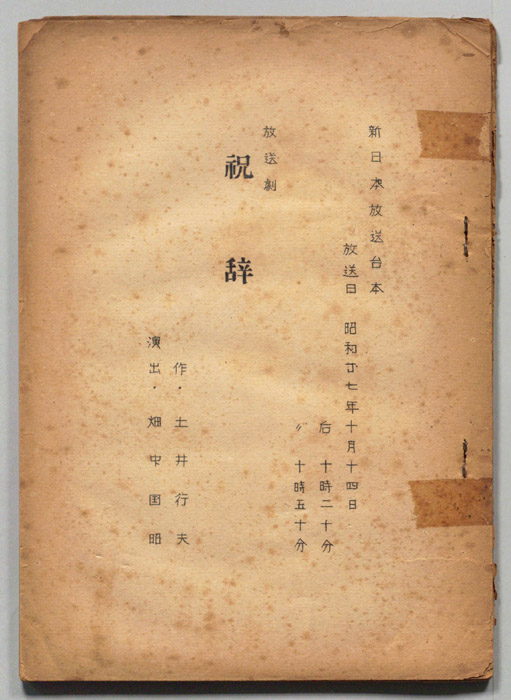 新日本放送台本
放送日 昭和廿七年十月十四日
后 十時二十分
〃 十時五十分
放送劇
祝辞
作・土井行夫
演出・畑中国昭